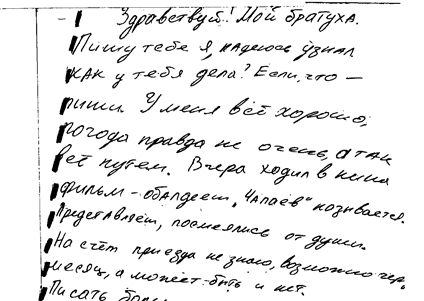 - 1 Здравствуй! Мой братуха.
Пишу тебе я, надеюсь узнал
как у тебя дела? Если, что —
пиши. У меня всё хорошо,
погода правда не очень, а так
всё путем. Вчера ходил в кина
фильм - обалдеешь, "Чапаев" называется.
Представляешь, посмеялись от души.
На счёт приезда не знаю, возможно чер.
месяц, а может-быть и нет.
Писать